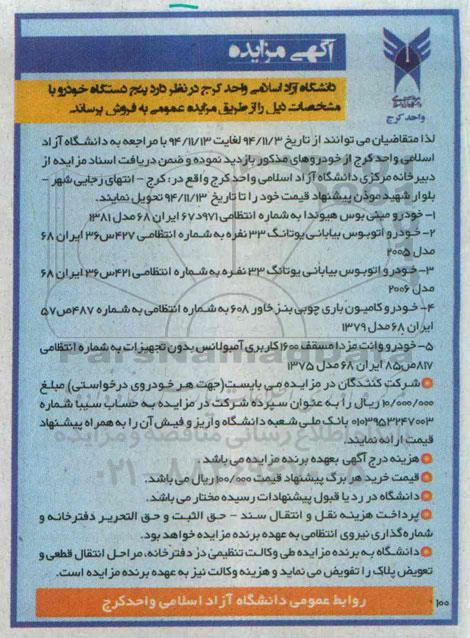 آگهی مزایده
واحد کرج
دانشگاه آزاد اسلامی واحد کرج در نظر دارد پنج دستگاه خودرو با
مشخصات ذیل را از طریق مزایده عمومی به فروش برساند.
لذا متقاضیان می توانند از تاریخ ۹۴/۱۱/۳ لغایت ۹۴/۱۱/۱۳ با مراجعه به دانشگاه آزاد
اسلامی واحد کرج از خودروهای مذکور بازدید نموده و ضمن دریافت اسناد مزایده از
دبیرخانه مرکزی دانشگاه آزاد اسلامی واحد کرج واقع در: کرج – انتهای رجایی شهر –
بلوار شهید موذن پیشنهاد قیمت خود را تا تاریخ ۹۴/۱۱/۱۳ تحویل نمایند.
۱- خودرو مینی بوس هیوندا به شماره انتظامی ۹۷۱د۶۷ ایران ۶۸ مدل ۱۳۸۱
۲- خودرو اتوبوس بیابانی یوتانگ ۳۳ نفره به شماره انتظامی ۴۲۷س۳۶ ایران ۶۸
مدل ۲۰۰۵
۳- خودرو اتوبوس بیابانی یوتانگ ۳۳ نفره به شماره انتظامی ۴۲۱س۳۶ ایران ۶۸
مدل ۲۰۰۶
۴- خودرو کامیون باری چوبی بنز خاور ۶۰۸ به شماره انتظامی به شماره ۴۸۷ص۵۷
ایران ۶۸ مدل ۱۳۷۹
۵- خودرو وانت مزدا مسقف ۱۶۰۰ کاربری آمبولانس بدون تجهیزات به شماره انتظامی
۸۱۷ص۸۵ ایران ۶۸ مدل ۱۳۷۵
شرکت کنندگان در مزایده می بایست (جهت هر خودروی درخواستی) مبلغ
۱۰/۰۰۰/۰۰۰ ریال را به عنوان سپرده شرکت در مزایده به حساب سیبا شماره
۰۱۰۳۹۵۳۲۴۷۰۰۳ بانک ملی شعبه دانشگاه واریز و فیش آن را به همراه پیشنهاد
قیمت ارائه نمایند.
هزینه درج آگهی بعهده برنده مزایده می باشد.
قیمت خرید هر برگ پیشنهاد قیمت ۱۰۰/۰۰۰ ریال می باشد.
دانشگاه در رد یا قبول پیشنهادات رسیده مختار می باشد.
پرداخت هزینه نقل و انتقال سند – حق الثبت و حق التحریر دفترخانه و
شماره گذاری نیروی انتظامی به عهده برنده مزایده خواهد بود.
دانشگاه به برنده مزایده طی وکالت تنظیمی در دفترخانه، مراحل انتقال قطعی و
تعویض پلاک را تفویض می نماید و هزینه وکالت نیز به عهده برنده مزایده است.
۱۰۰
روابط عمومی دانشگاه آزاد اسلامی واحد کرج